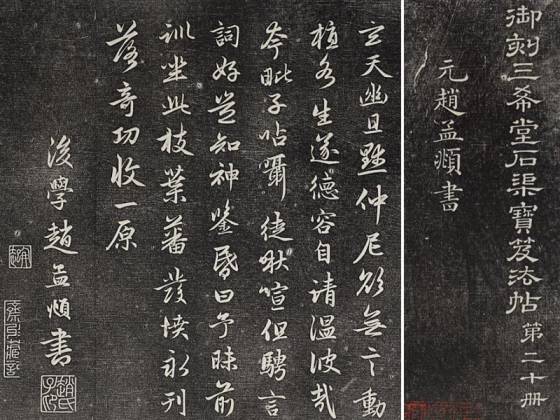 御刻三希堂石渠寶笈法帖 第二十冊
元趙孟頫書
玄天幽且默仲尼欲無言動
植各生遂德容自清溫彼哉
夸毗子呫囁徒啾喧但騁言
詞好豈知神鑒昏曰予昧前
訓坐此枝葉蕃發憤永刊
落奇功收一原
後學趙孟頫書
趙氏子昂